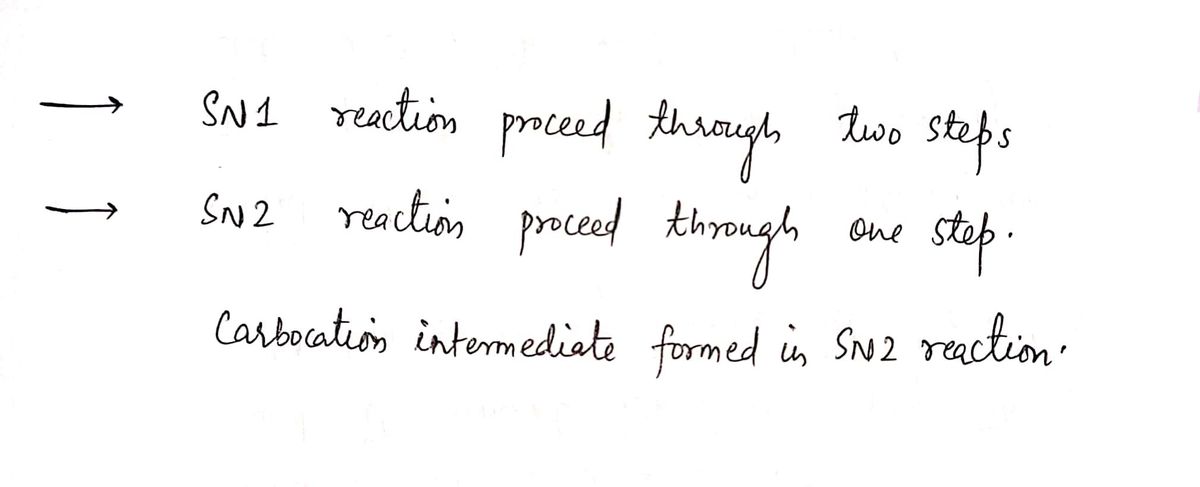 → SN1 reaction proceed through two steps
→ SN2 reaction proceed through one step.
Carbocation intermediate formed in SN2 reaction.